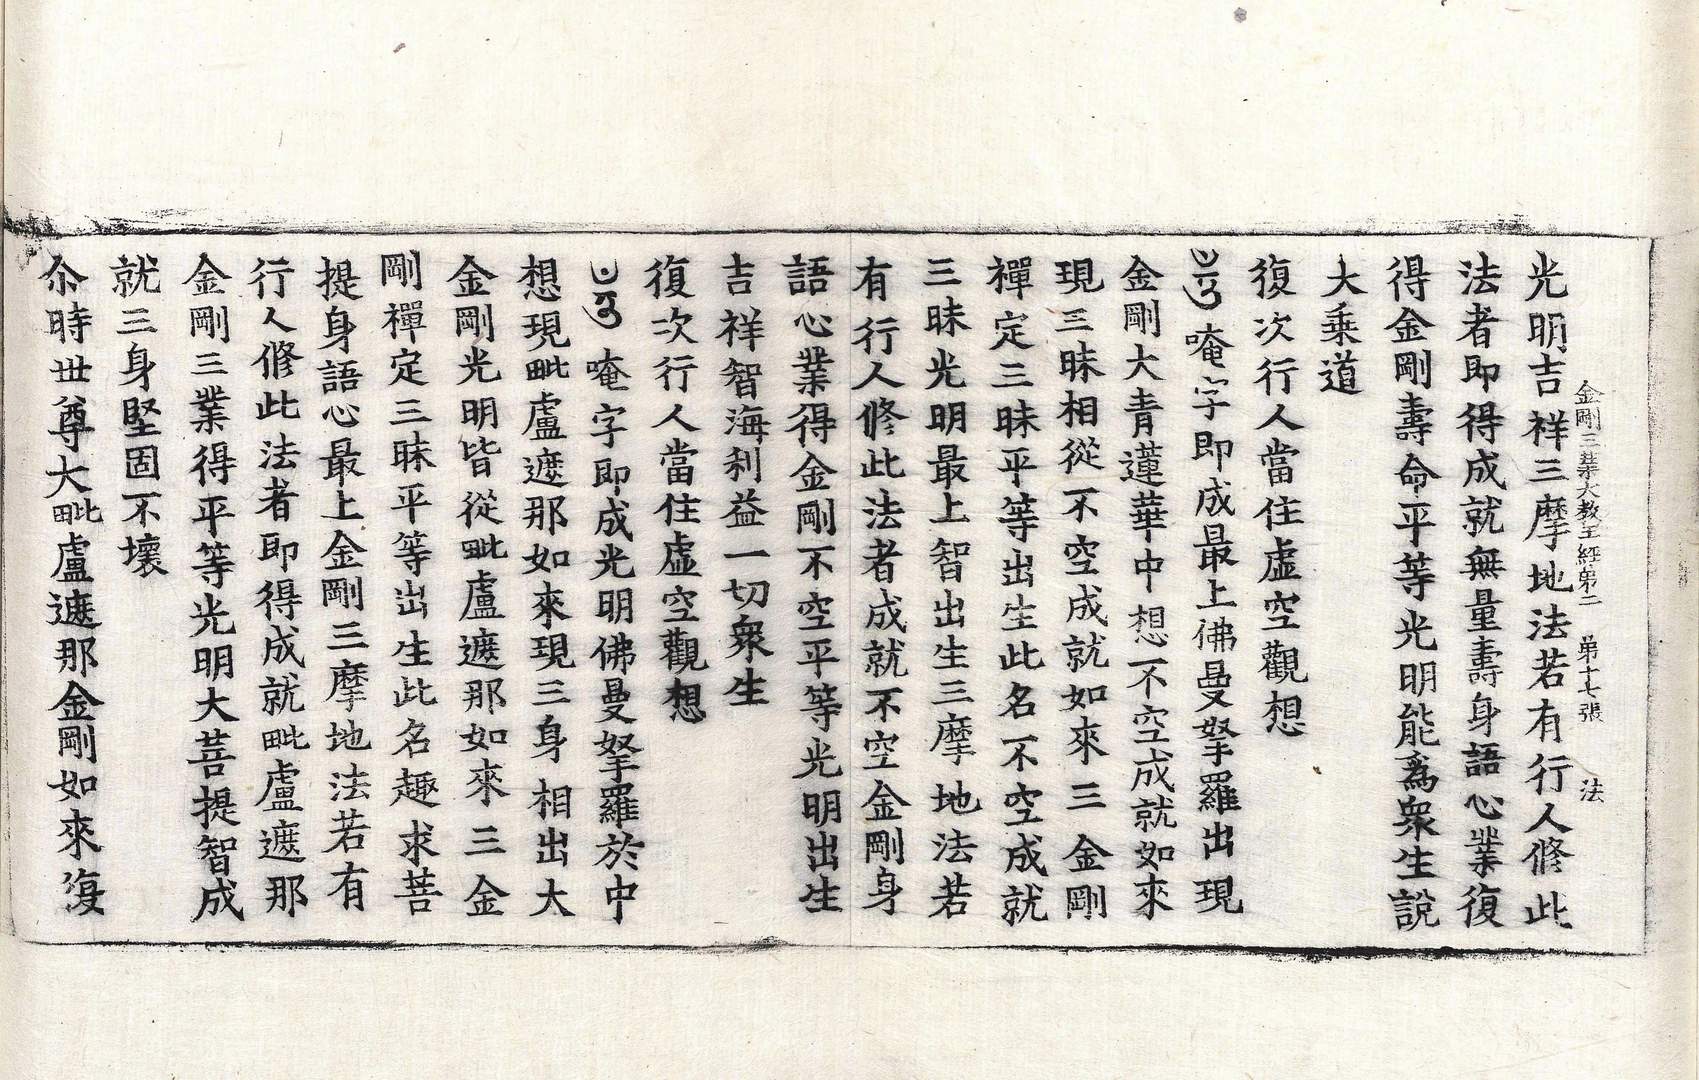 金剛三業大教王經第二　第十七張　法
光明吉祥三摩地法若有行人修此
法者即得成就無量壽身語心業復
得金剛壽命平等光明能為衆生說
大乗道
復次行人當住虛空觀想
唵字即成最上佛曼拏羅出現
金剛大青蓮華中想不空成就如來
現三昧相從不空成就如來三金剛
禪定三昧平等出生此名不空成就
三昧光明最上智出生三摩地法若
有行人修此法者成就不空金剛身
語心業得金剛不空平等光明出生
吉祥智海利益一切衆生
復次行人當住虛空觀想
唵字即成光明佛曼拏羅於中
想現毗盧遮那如來現三身相出大
金剛光明皆從毗盧遮那如來三金
剛禪定三昧平等出生此名趣求菩
提身語心最上金剛三摩地法若有
行人修此法者即得成就毗盧遮那
金剛三業得平等光明大菩提智成
就三身堅固不壞
尒時世尊大毗盧遮那金剛如來復